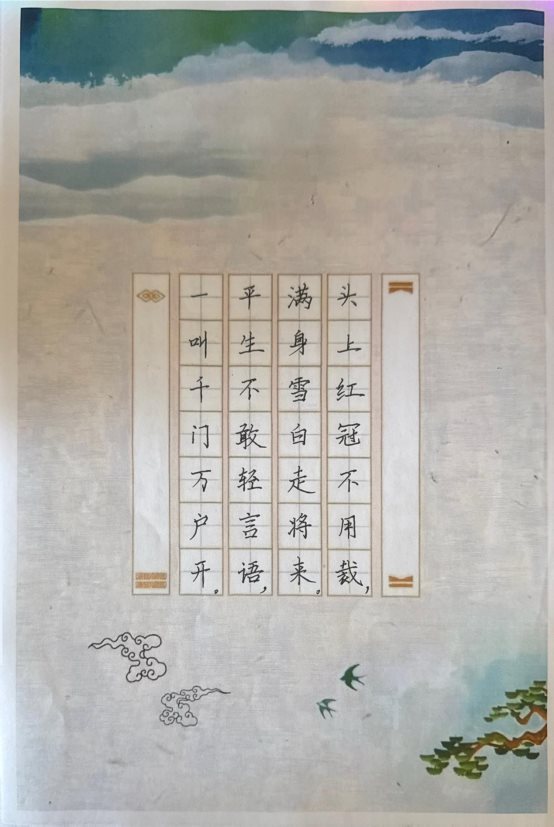 头上红冠不用裁，
满身雪白走将来。
平生不敢轻言语，
一叫千门万户开。